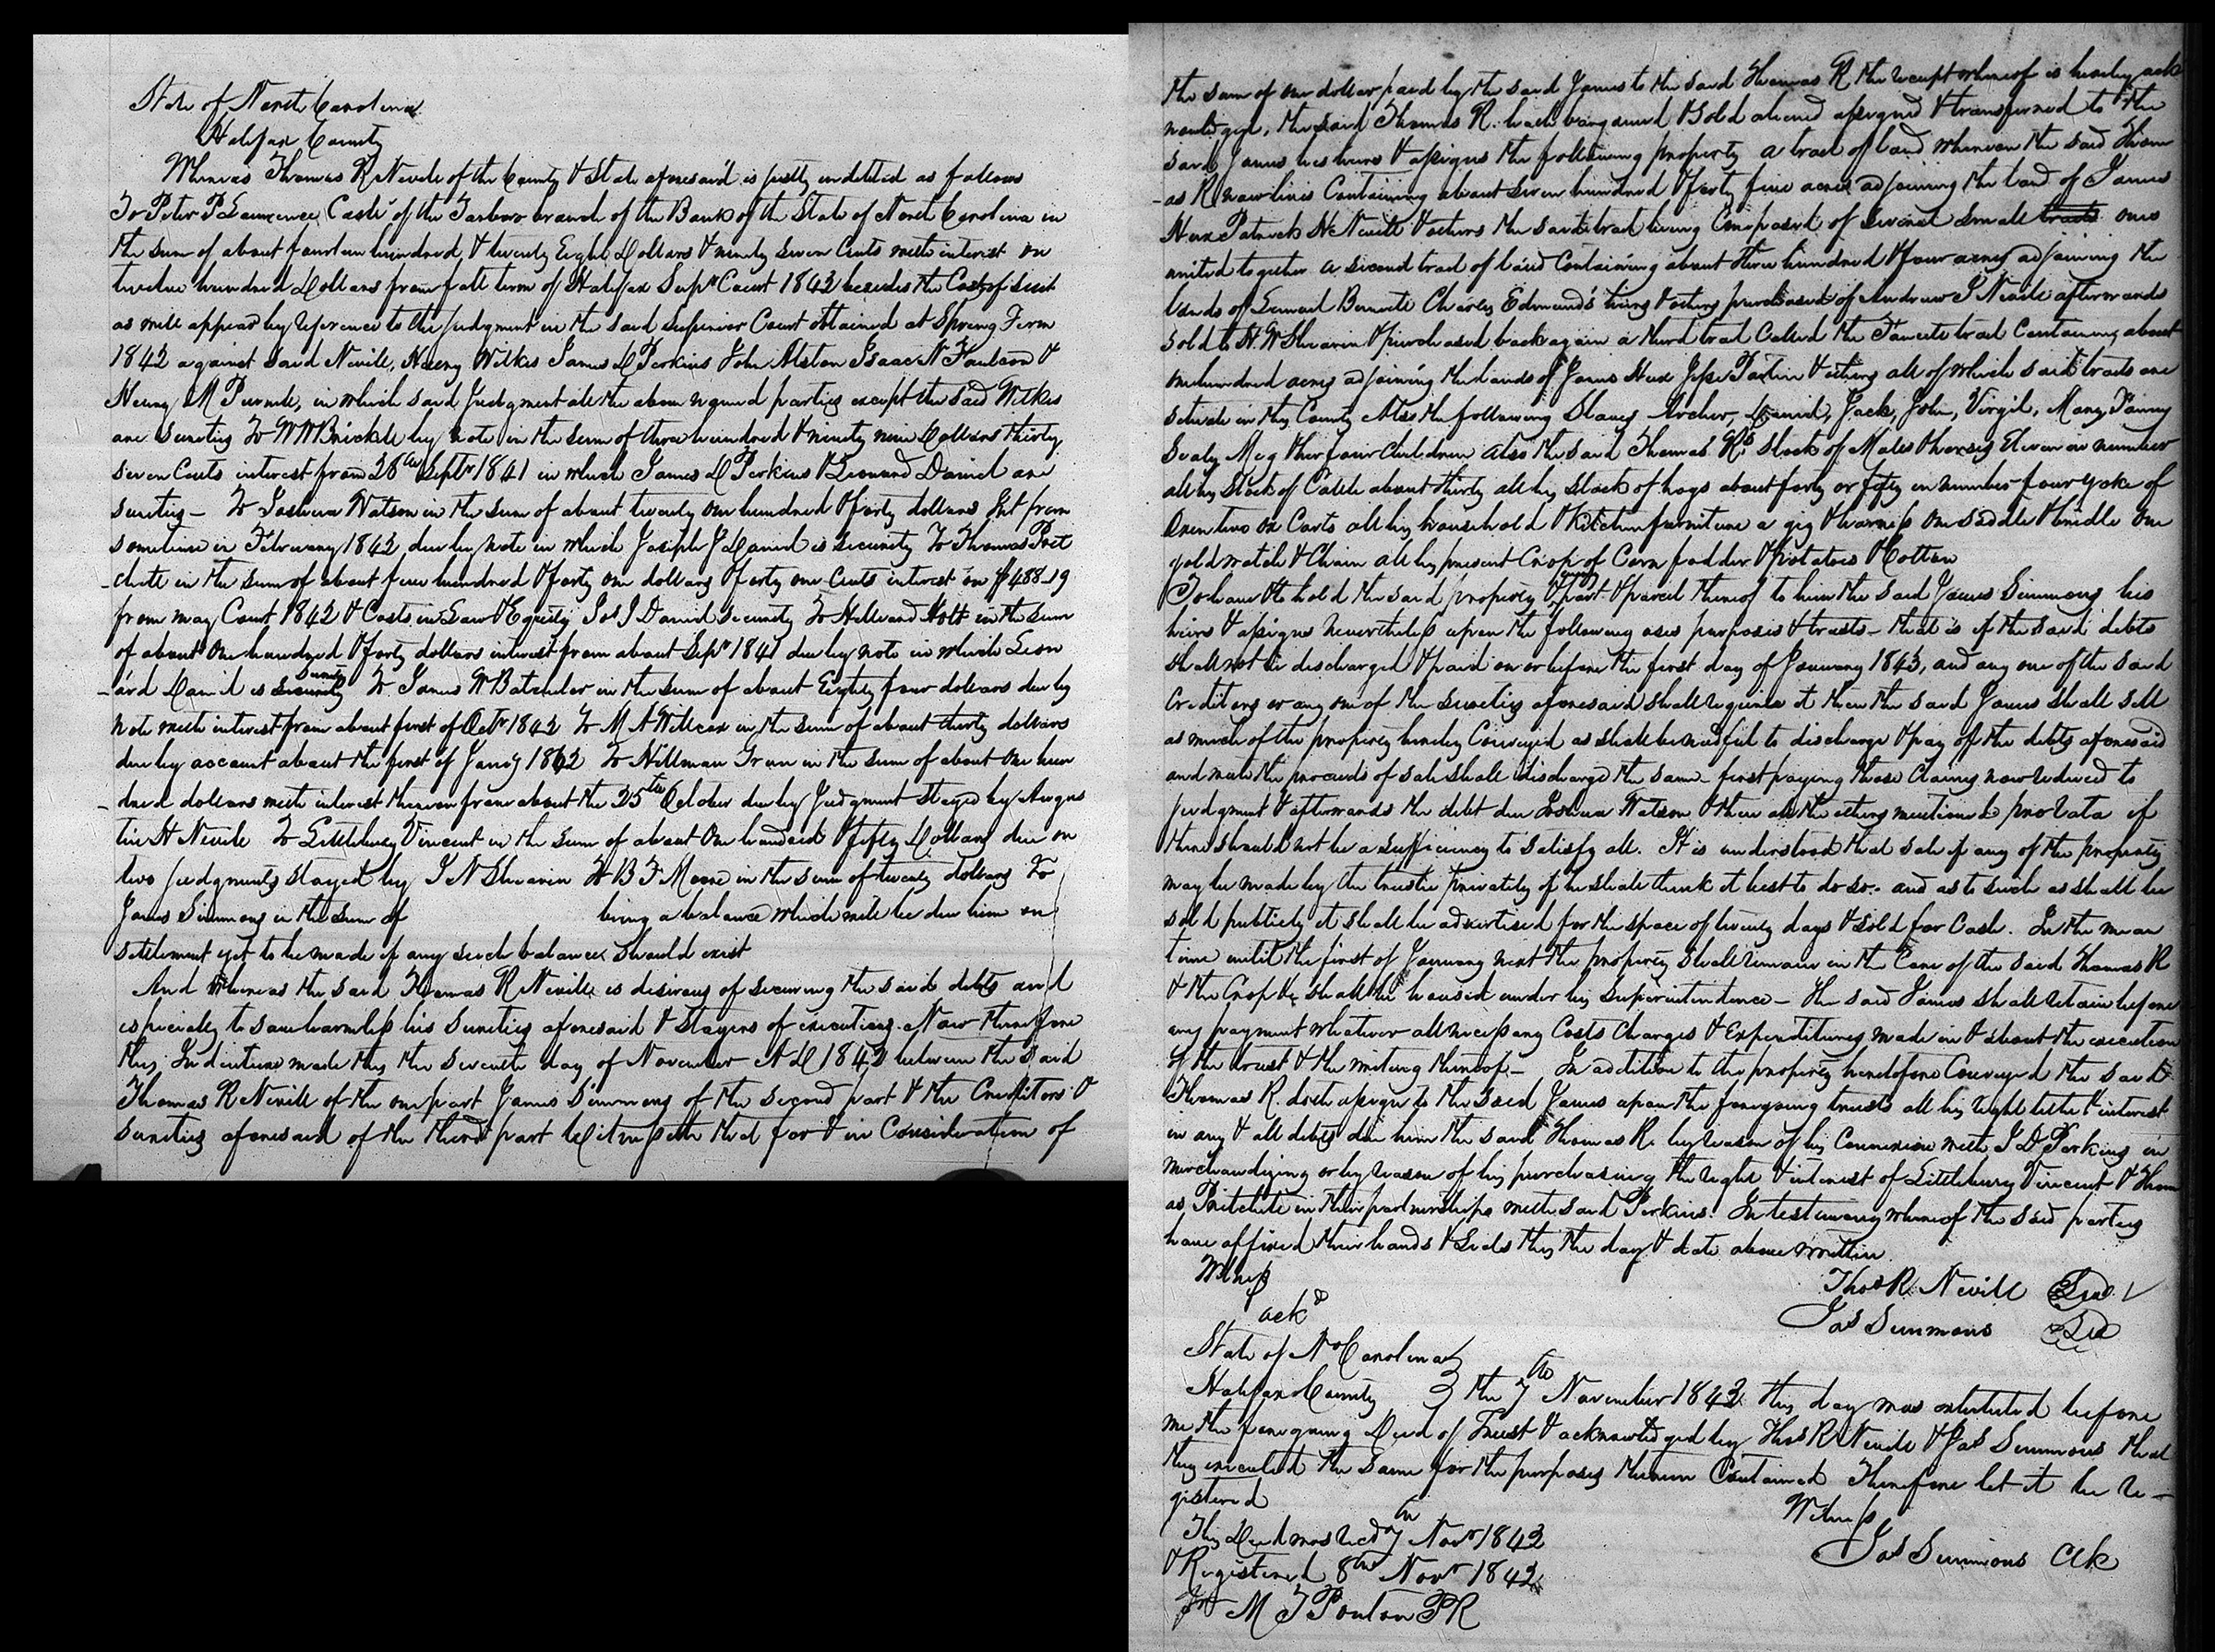 State of North Carolina
Halifax County
Whereas Thomas R Nevill of the County & State aforesaid is justly indebted as follows
To Peter P Lawrence Cash.r of the Tarboro branch of the Bank of the State of North Carolina in
the sum of about fourteen hundred, & twenty Eight Dollars & ninety seven Cents with interest on
twelve hundred Dollars from fall term of Halifax Sup.r Court 1842 besides the Cost of Suit
as will appear by reference to the judgment in the said Superior Court obtained at Spring Term
1842 against said Nevill, Henry Wilkes James D Perkins John Alston Isaac N Faulcon &
Henry M Purnell, in which said Judgment all the above named parties except the said Wilkes
are Sureties To W W Brickle by note in the sum of three hundred & ninety nine Dollars thirty
seven Cents interest from 28th Sept.r 1841 in which James D Perkins & Leonard Daniel are
sureties — To Joshua Watson in the sum of about twenty one hundred & forty dollars Int from
sometime in February 1842 due by note in which Joseph J Daniel is security To Thomas Prit
chett in the sum of about five hundred & forty one dollars & forty one Cents interest on $488.19
from May Court 1842 & Costs in Law & Equity Jos J Daniel security To Hilliard Hott in the sum
of about One hundred & forty dollars interest from about Sep.r 1841 due by note in which Leon
ard Daniel is security surety To James W Batchelor in the sum of about Eighty four dollars due by
note with interest from about first of Oct.r 1842 To M A Willcox in the sum of about thirty dollars
due by account about the first of Jan.y 1842 To Hillman in the sum of about one hun
dred dollars with interest thereon from about the 25th October due by Judgment stayed by Augus
tin H Nevill To Littlebury Vincent in the sum of about One hundred & fifty Dollars due on
two judgments stayed by J N Shearin To B F Moore in the sum of twenty dollars To
James Simmons in the sum of being a balance which will be due him on
settlement yet to be made if any such balance should exist
And Whereas the said Thomas R Nevill is desirous of securing the said debts and
especially to save harmless his Sureties aforesaid & stayers of executions. Now therefore
this Indenture made this the seventh day of November AD 1842 between the said
Thomas R Nevill of the one part James Simmons of the second part & the Creditors &
sureties aforesaid of the third part Witnesseth that for & in Consideration of
the sum of one dollar paid by the said James to the said Thomas R the receipt whereof is hereby ack
nowledged, the said Thomas R. hath bargained & sold aliened assigned & transferred to the
said James his heirs & assigns the following property a tract of land whereon the said Thom
as R now lives Containing about seven hundred & forty five acres adjoining the land of James
Hux Patrick H Nevill & others the said tract being Composed of several small tracts ones
united together a second tract of land Containing about three hundred & four acres adjoining the
lands of Lemuel Burnett Charles Edmunds heirs & others purchased of Andrew J Nevill afterwards
sold to H. W Shearin & purchased back again a third tract Called the Faucett tract Containing about
one hundred acres adjoining the lands of James Hux Jesse Partin & others all of which said tracts are
situate in this County Also the following Slaves Archer, Daniel, Jack, John, Virgil, Mary, Fanny
Sealy Meg & her four children also the said Thomas Rs Stock of Mules & horses Eleven in number
all his Stock of Cattle about thirty all his stock of hogs about forty or fifty in number four yoke of
Oxen two ox Carts all his household & kitchen furniture a gig & harness One saddle & bridle One
gold watch & Chain all his present Crop of Corn fodder & potatoes & Cotton
To have & to hold the said property & every part & parcel thereof to him the said James Simmons his
heirs & assigns nevertheless upon the following uses purposes & trusts — that is if the said debts
shall not be discharged & paid on or before the first day of January 1843, and any one of the said
Creditors or any one of the sureties aforesaid shall require it then the said James shall sell
as much of the property hereby Conveyed as shall be needful to discharge & pay off the debts aforesaid
and with the proceeds of sale shall discharge the same first paying those Claims now reduced to
judgment & afterwards the debt due Joshua Watson & then all the others mentioned pro rata if
there should not be a sufficiency to satisfy all. It is understood that sale if any of the property
may be made by the trustee privately if he shall think it best to do so. and as to such as shall be
sold publicly it shall be advertised for the space of twenty days & sold for Cash. In the mean
time until the first of January next the property shall remain in the Care of the said Thomas R
& the Crop &c shall be housed under his Superintendence — The said James shall retain before
any payment whatever all necessary Costs Charges & Expenditures made in & about the execution
of the trust & the writing thereof — In addition to the property heretofore Conveyed the said
Thomas R. doth assign to the said James upon the foregoing trusts all his right title & interest
in any & all debts due him the said Thomas R. by reason of his Connexion with J D Perkins in
merchandizing or by reason of his purchasing the right & interest of Littlebury Vincent & Thom
as Pritchett in their partnerships with said Perkins. In testimony whereof the said parties
have affixed their hands & Seals this the day & date above written
Witness
ackd
Thos R. Nevill Seal
Jas Simmons Seal
State of No Carolina
Halifax County 3 the 7th November 1842 this day was exhibited before
me the foregoing Deed of Trust & acknowledged by Thos R Nevill & Jas Simmons that
they executed the same for the purposes therein Contained Therefore let it be re-
gistered
Witness
Jas Simmons Clk
This Deed was recd 7th Novr 1842
& Registered 8th Novr 1842
M T Ponton PR